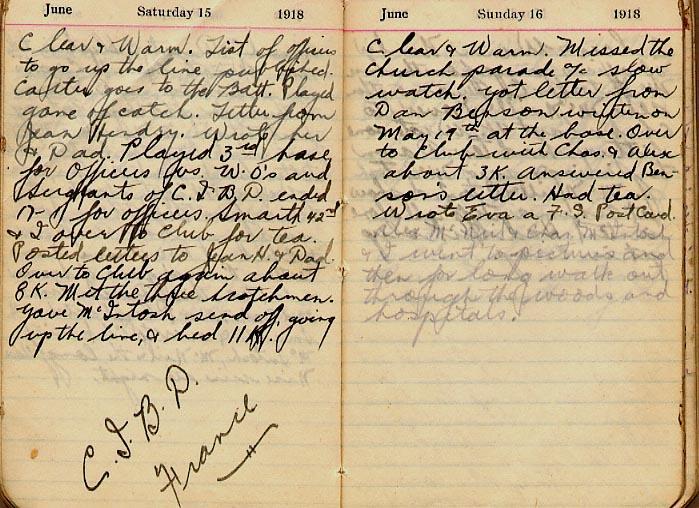 June Saturday 15 1918
Clear & Warm. List of officers
to go up the line published.
Carter goes to the Batt. Played
game of catch. Letter from
Jean Hendry. Wrote her
& Dad. Played 3rd base
for Officers vs. W.O's and
Sergeants of C.I.B.D. ended
for officers. Smarth 42nd
& I over to Club for tea.
Posted letters to Jean H. & Dad.
Over to Club again about
8K. Met the three Scotchmen.
Gave McIntosh send off, going
up the line, & bed 11K.
C.I.B.D.
France
June Sunday 16 1918
Clear & Warm. Missed the
church parade a/c slow
watch. Got letter from
Dan Benson written on
May 19th at the base. Over
to Club with Chas. & Alex
about 3K. Answered Ben-
son's letter. Had tea.
Wrote Eva a F.S. Post Card.
Alex McNeil & Chas. McIntosh
& I went to pictures and
then for long walk out
through the woods and
hospitals.